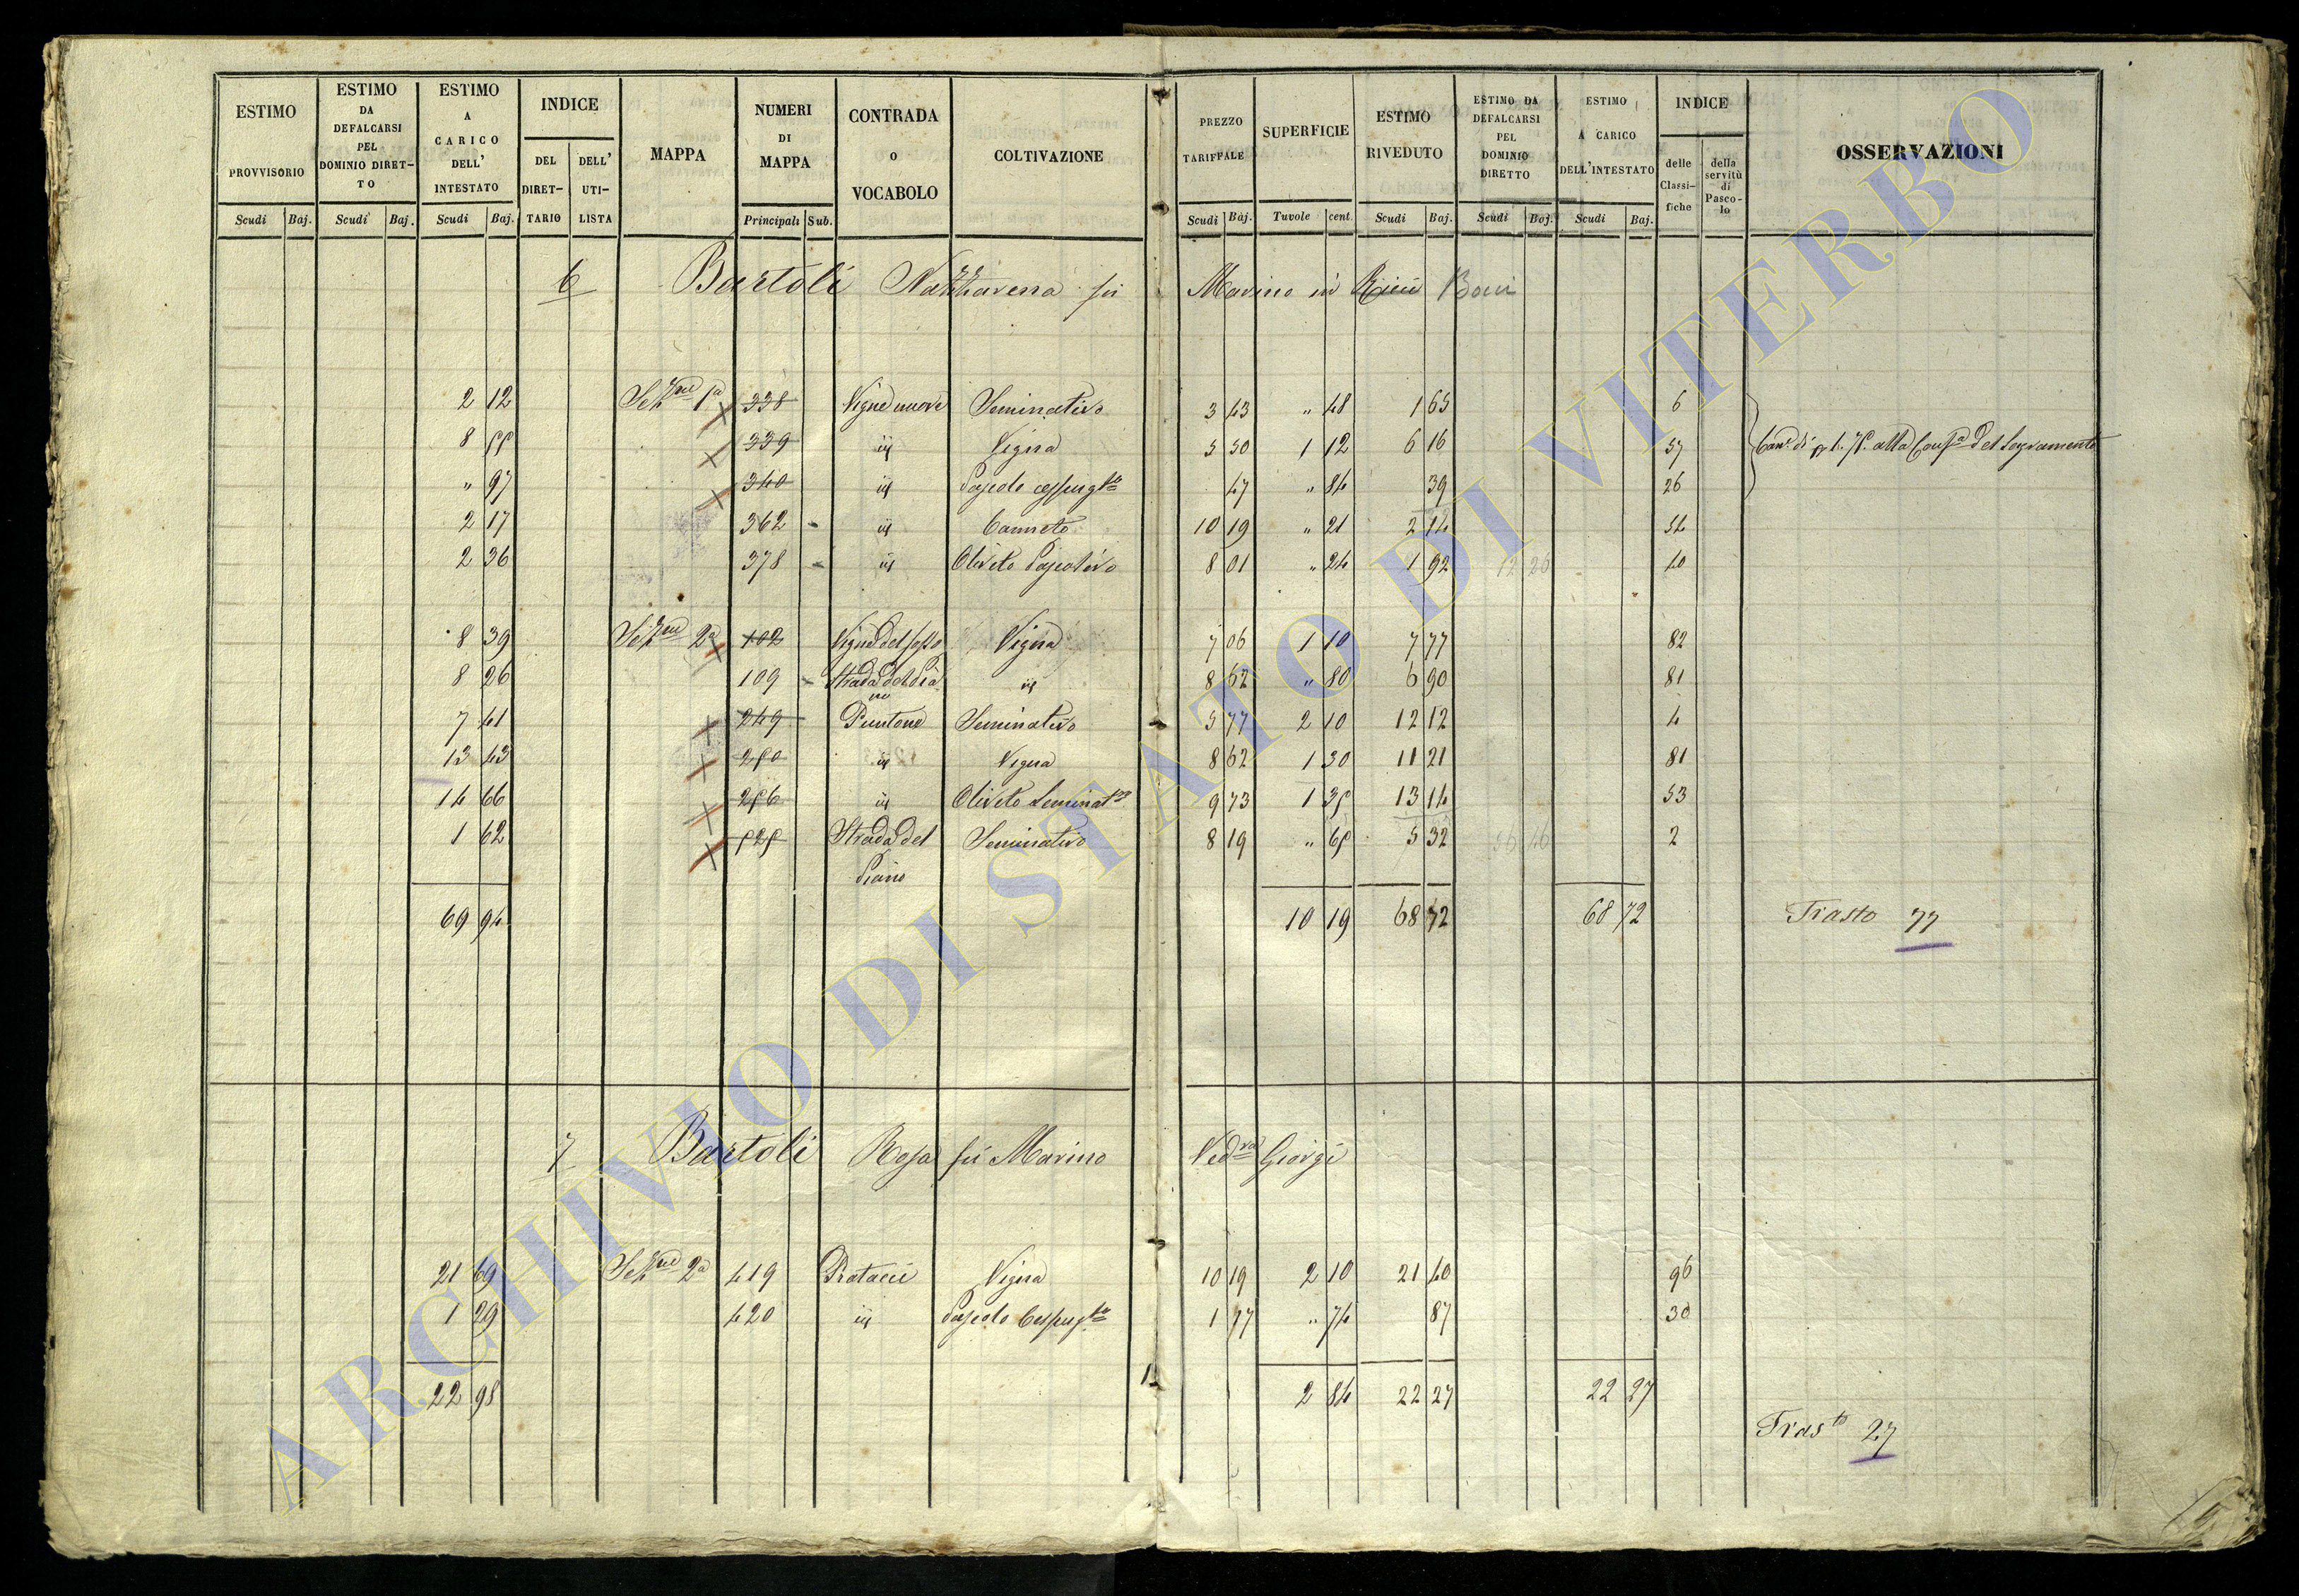 ESTIMO PROVVISORIO Scudi Baj. ESTIMO DA DEFALCARSI PEL DOMINIO DIRET-TO Scudi Baj. ESTIMO A CARICO DELL' INTESTATO Scudi Baj. INDICE DEL DIRET-TARIO DELL' UTI-LISTA MAPPA NUMERI DI MAPPA Principali Sub. CONTRADA O VOCABOLO COLTIVAZIONE PREZZO TARIFFALE Scudi Baj. SUPERFICIE Tavole cent. ESTIMO RIVEDUTO Scudi Baj. ESTIMO DA DEFALCARSI PEL DOMINIO DIRETTO Scudi Baj. ESTIMO A CARICO DELL'INTESTATO Scudi Baj. INDICE delle Classi-fiche della servitù di Pasco-lo OSSERVAZIONI
6 Bartoli Nazzarena fu Marino in Ricci Bocci
2 12 Sezne 1a 338 Vigne nuove Seminativo 3 43 " 48 1 65 6
8 55 339 id Vigna 5 50 1 12 6 16 57 Cane di alla Confa del Sagramento
" 97 340 id Pascolo cespugto 47 " 84 39 26
2 17 362 - id Canneto 10 19 " 21 2 14 54
2 36 378 - id Oliveto Pascolivo 8 01 " 24 1 92 12 26 40
8 39 Sezne 2a 102 Vigne del fosso Vigna 7 06 1 10 7 77 82
8 26 109 - Strada del Piano id 8 62 " 80 6 90 81
7 41 249 Puntone Seminativo 5 77 2 10 12 12 4
13 43 250 id Vigna 8 62 1 30 11 21 81
14 66 256 id Oliveto Seminato 9 73 1 35 13 14 53
1 62 525 Strada del Piano Seminativo 8 19 " 65 5 32 56 46 2
69 94 10 19 68 72 68 72 Trasto 77
7 Bartoli Rosa fu Marino Vedva Giorgi
21 69 Sezne 2a 419 Pratacci Vigna 10 19 2 10 21 40 96
1 29 420 id Pascolo Cespugto 1 77 " 74 87 30
22 98 2 84 22 27 22 27
Trasto 27
ARCHIVIO DI STATO DI VITERBO